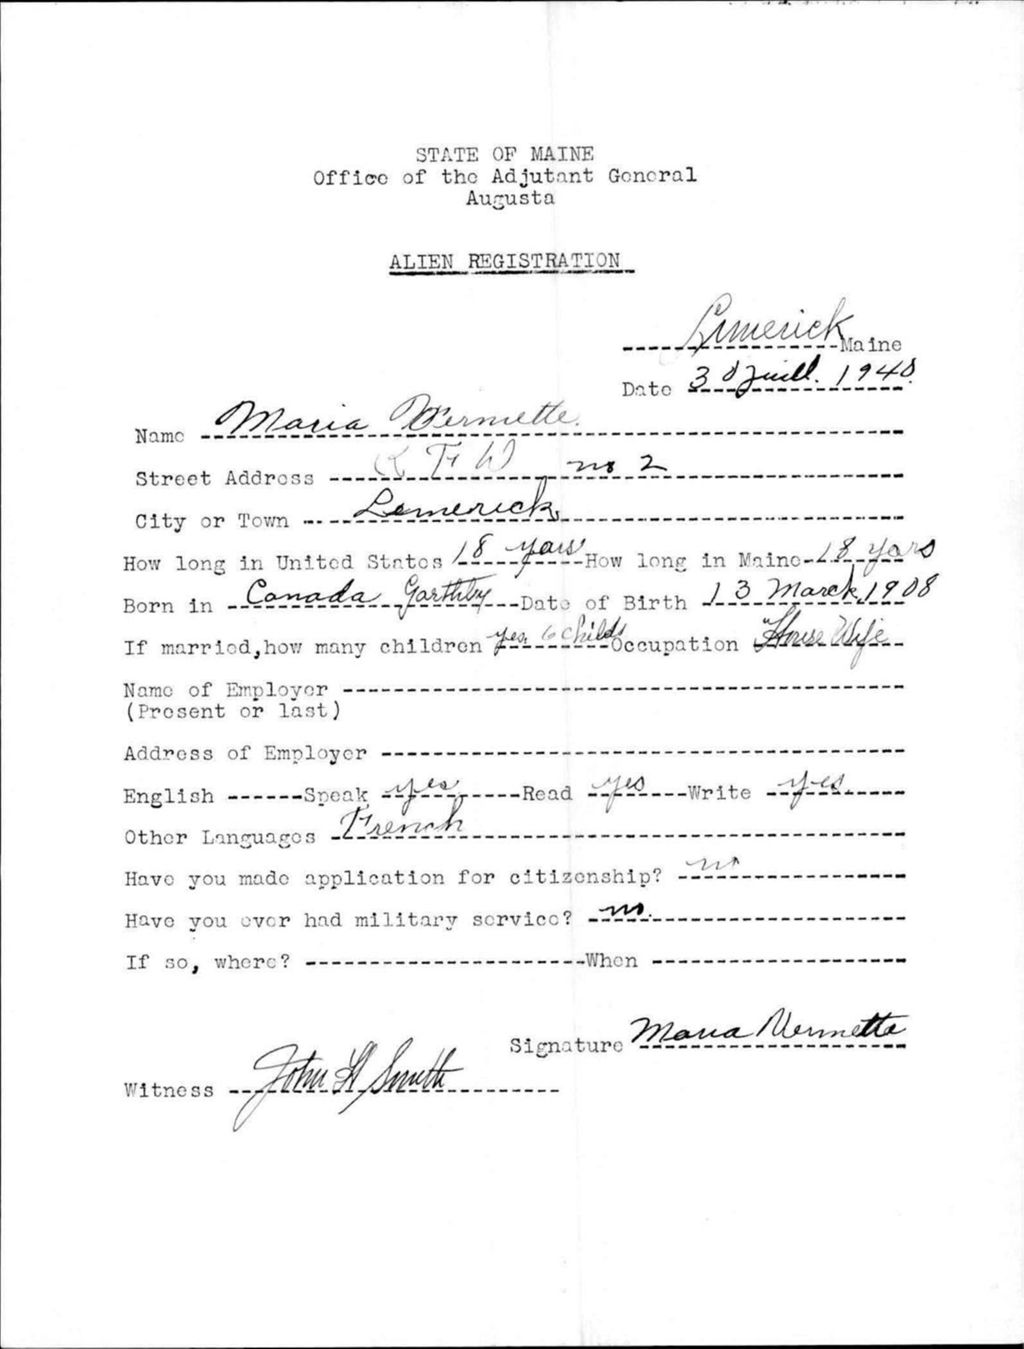 STATE OF MAINE
Office of the Adjutant General
Augusta
ALIEN REGISTRATION
Limerick Maine
Date 30 Juill. 1940
Name Maria Vermette.
Street Address R F W no 2
City or Town Lemerick
How long in United States 18 years How long in Maine 18 years
Born in Canada Garthby Date of Birth 13 March 1908
If married, how many children yes, 6 childs Occupation House Wife
Name of Employer
(Present or last)
Address of Employer
English Speak yes Read yes Write yes.
Other Languages French
Have you made application for citizenship? no
Have you ever had military service? no.
If so, where? When
Signature Maria Vermette
Witness John H Smith